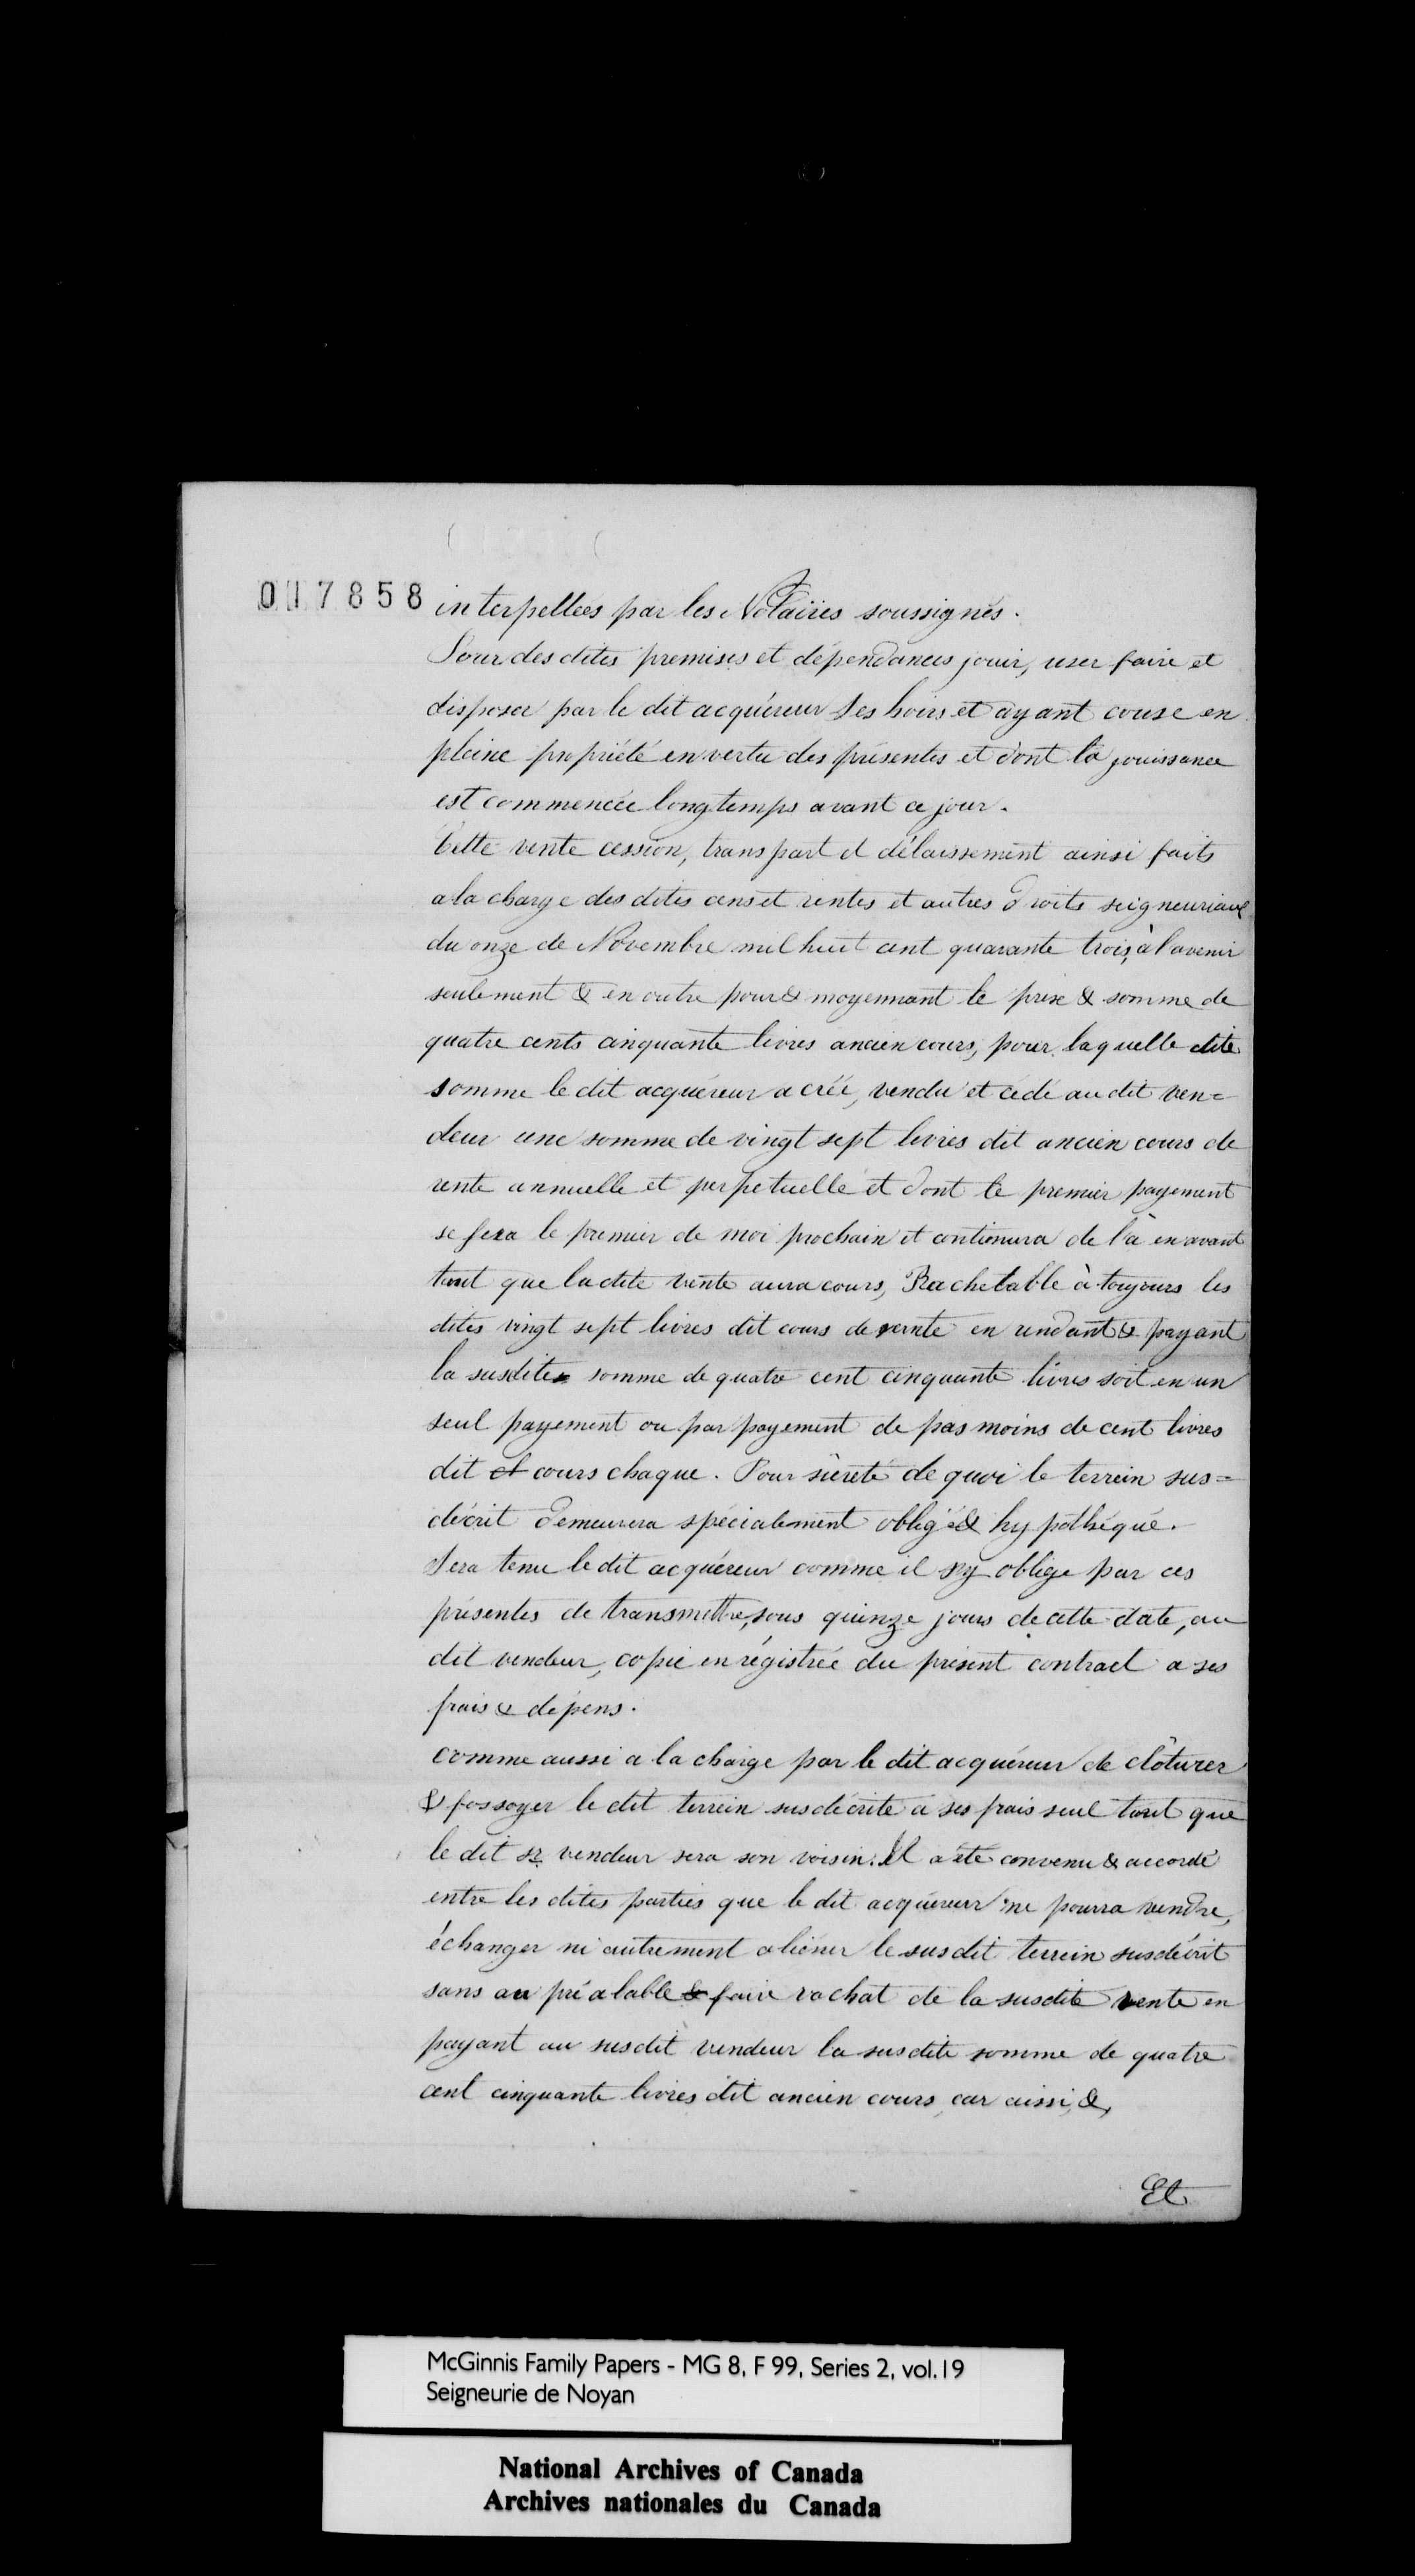 017858
interpellées par les Notaires soussignés.
Pour des dites premises et dépendances jouir, user faire et
disposer par le dit acquéreur Ses hoirs et ayant couse en
pleine propriété en vertu des présentes et dont la jouissance
est commencée longtemps avant ce jour.
Cette vente cession, transport et délaissement ainsi faits
a la charge des dites cens et rentes et autres droits seigneuriaux
du onze de Novembre mil huit cent quarante trois, à l'avenir
seulement & en outre pour & moyennant le prix & somme de
quatre cents cinquante livres ancien cours, pour laquelle dite
somme le dit acquéreur a créé, vendu et cédé au dit ven=
deur une somme de vingt sept livres dit ancien cours de
rente annuelle et perpetuelle et dont le premier payement
se fera le premier de mai prochain et continura de là en avant
tant que la dite rente aura cours, Rachetable à toujours les
dites vingt sept livres dit cours de rente en rendant & payant
la susdite somme de quatre cent cinquante livres soit en un
seul payement ou par payement de pas moins de cent livres
dit cours chaque. Pour sûreté de quoi le terrein sus=
décrit demeurera spécialement obligé & hypothéqué.
Sera tenu le dit acquéreur comme il s'y oblige par ces
présentes de transmettre, sous quinze jours de cette date, au
dit vendeur, copie enrégistrée du présent contract a ses
frais & dépens.
comme aussi a la charge par le dit acquéreur de clôturer
& fossoyer le dit terrein susdécrite à ses frais seul tant que
le dit sr. vendeur sera son voisin. Il a été convenu & accordé
entre les dites parties que le dit acquéreur ne pourra vendre,
échanger ni autrement aliéner le susdit terrein susdécrit
sans au préalable faire rachat de la susdite rente en
payant au susdit vendeur la susdite somme de quatre
cent cinquante livres dit ancien cours car aissi, &,
Et
McGinnis Family Papers - MG 8, F 99, Series 2, vol.19
Seigneurie de Noyan
National Archives of Canada
Archives nationales du Canada